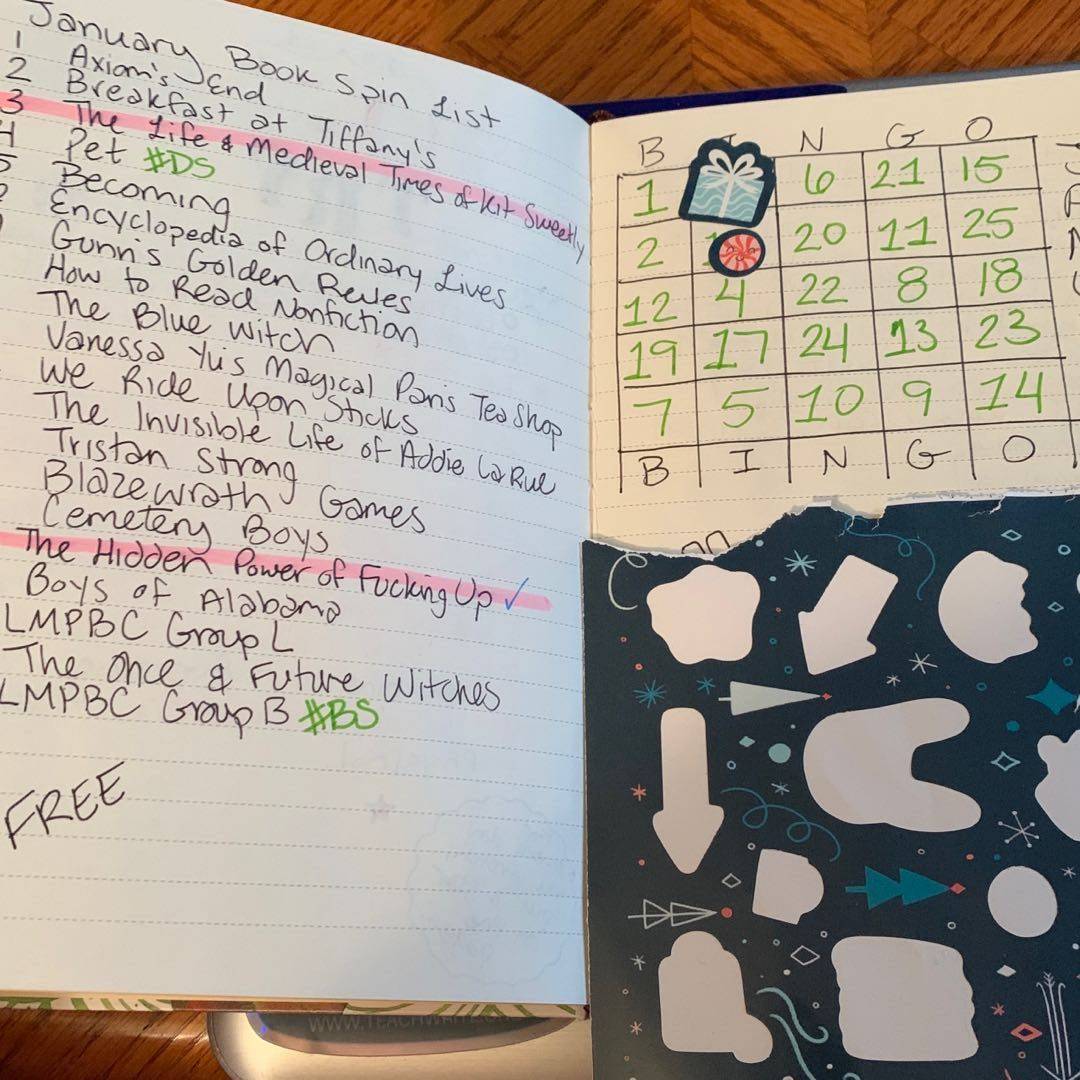 January Book Spin List
1 Axiom's End
2 Breakfast at Tiffany's
3 The Life & Medieval Times of Kit Sweetly
4 Pet #DS
5 Becoming
Encyclopedia of Ordinary Lives
Gunn's Golden Rules
How to Read Nonfiction
The Blue Witch
Vanessa Yus Magical Paris Tea Shop
We Ride Upon Sticks
The Invisible Life of Addie LaRue
Tristan Strong
Blazewrath Games
Cemetery Boys
The Hidden Power of Fucking Up ✓
Boys of Alabama
LMPBC Group L
The Once & Future Witches
LMPBC Group B #BS
FREE
B N G O
1 6 21 15
2 20 11 25
12 4 22 8 18
19 17 24 13 23
7 5 10 9 14
B I N G O